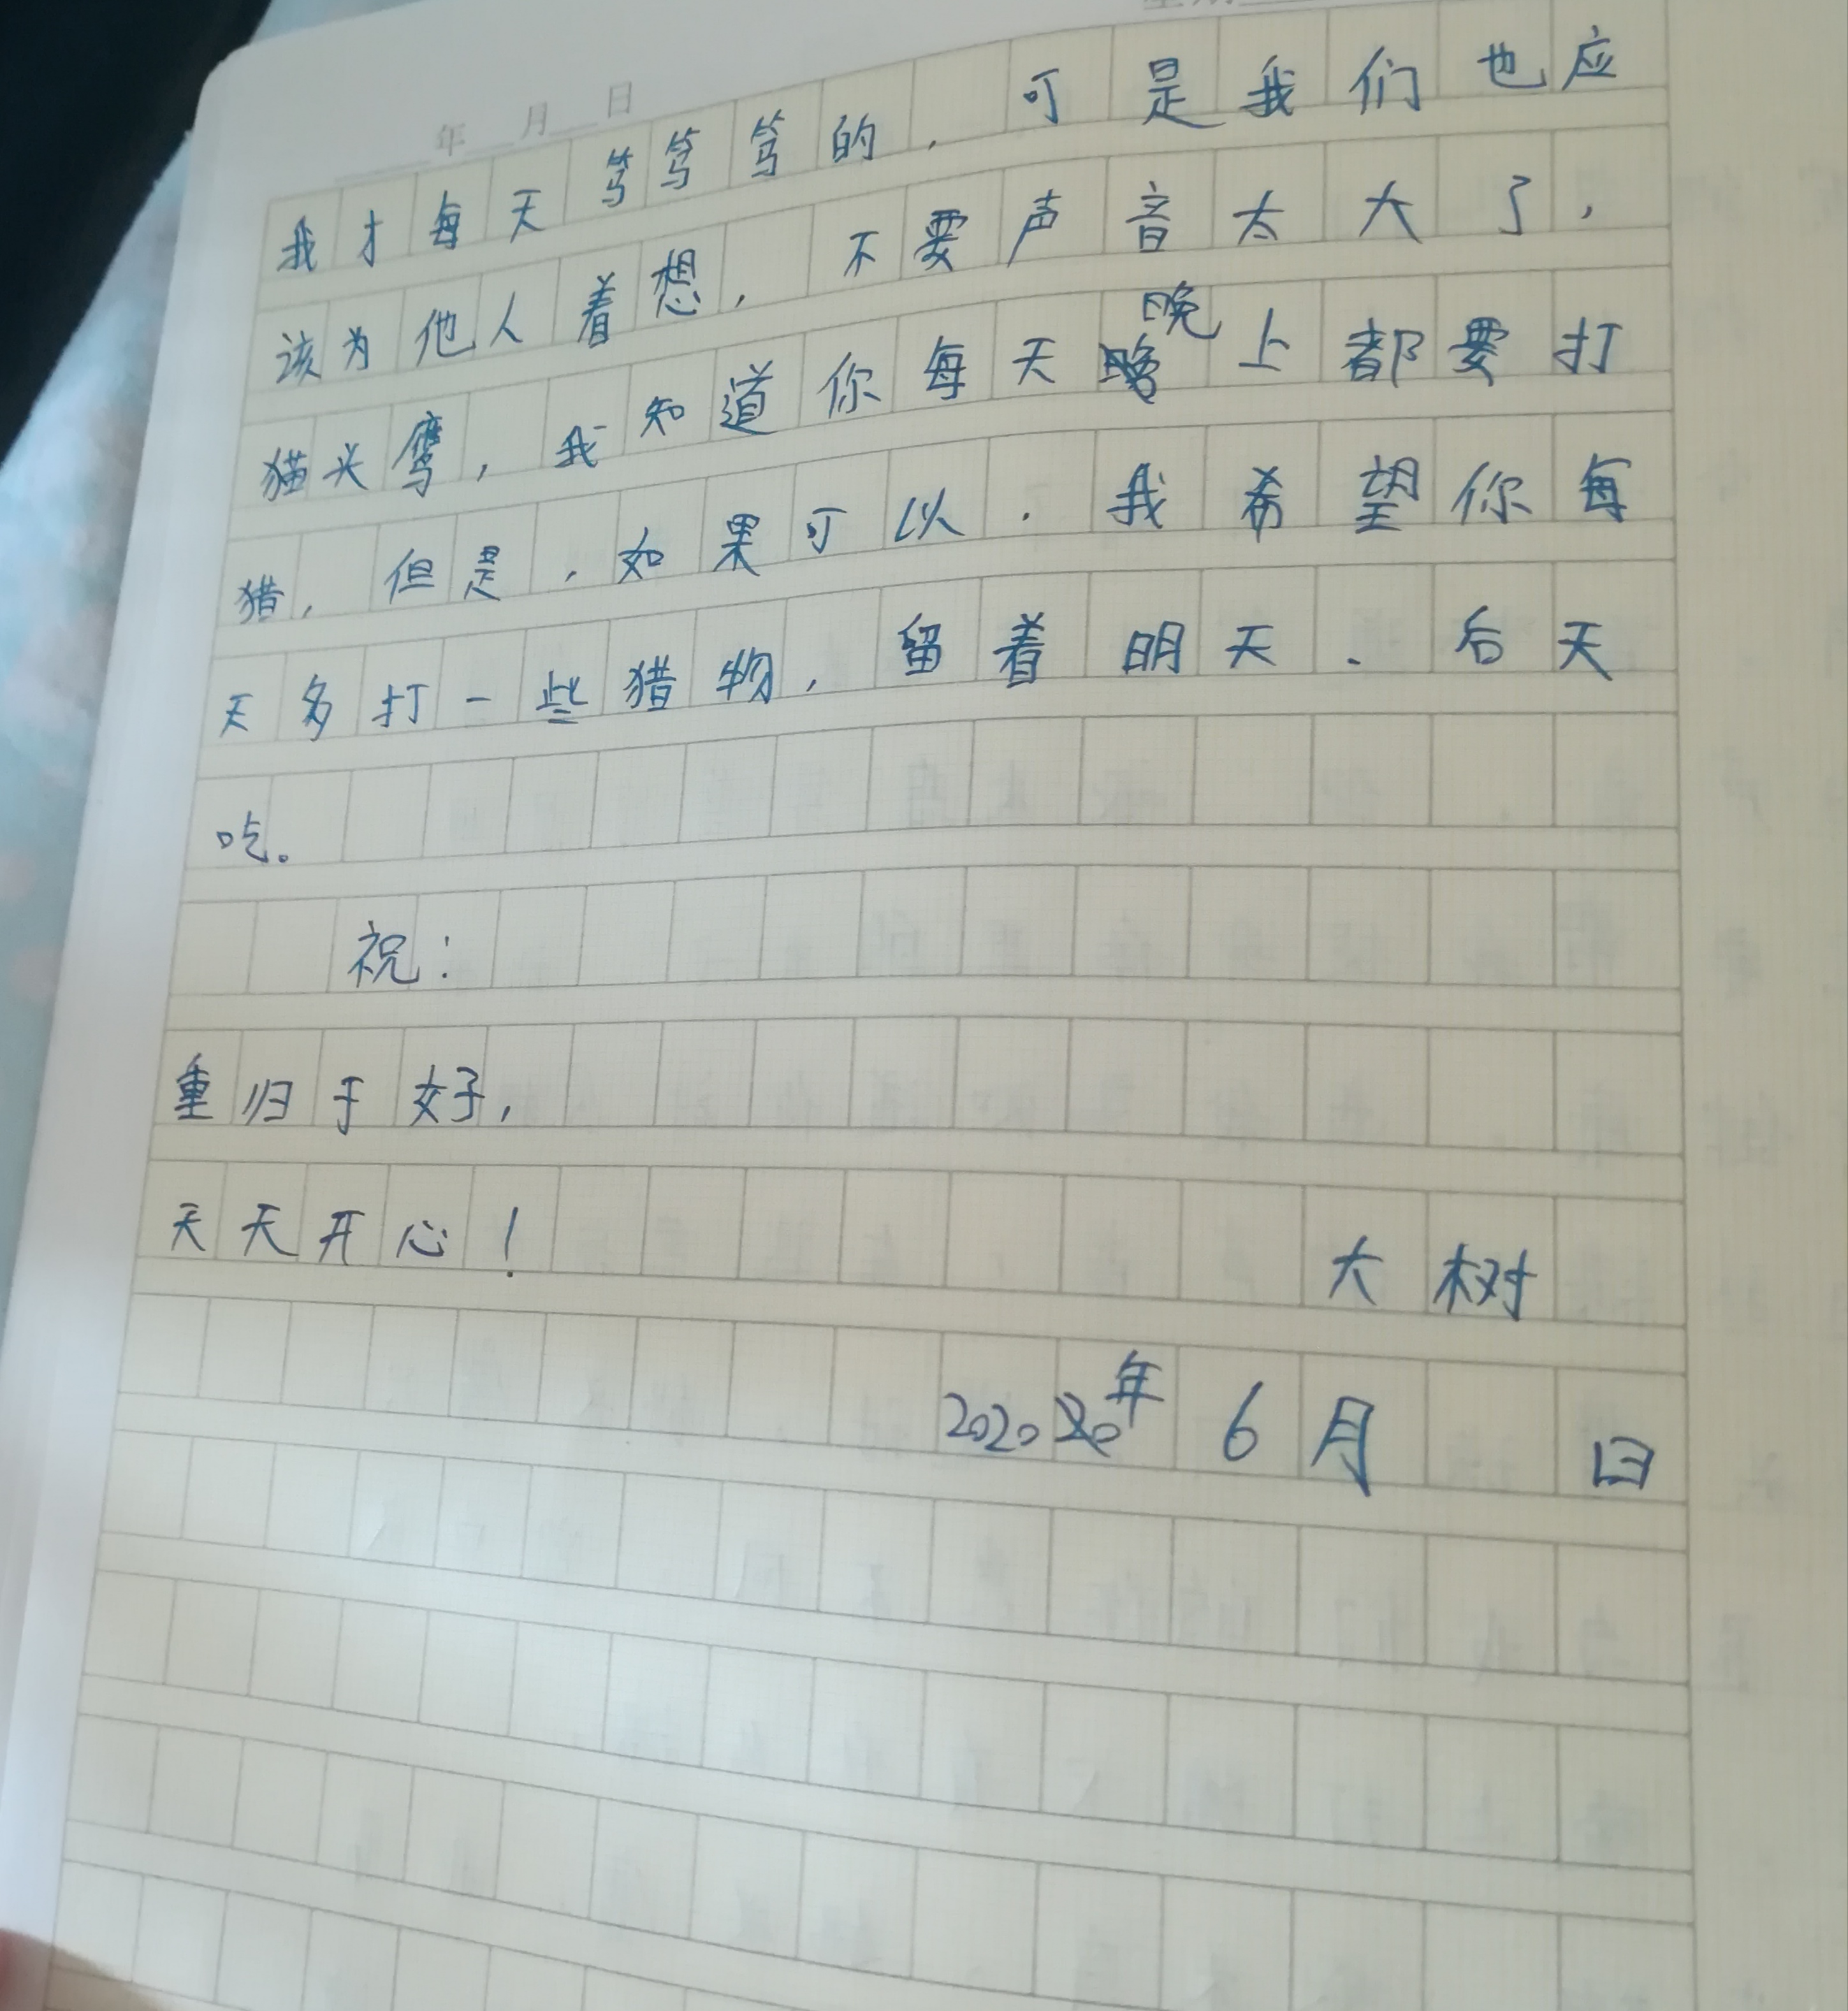 年 月 日
我才每天笃笃笃的，可是我们也应
该为他人着想，不要声音太大了，
猫头鹰，我知道你每天晚上都要打
猎，但是，如果可以.我希望你每
天多打一些猎物，留着明天.后天
吃。
祝：
重归于好，
天天开心！
大树
2020年6月 日